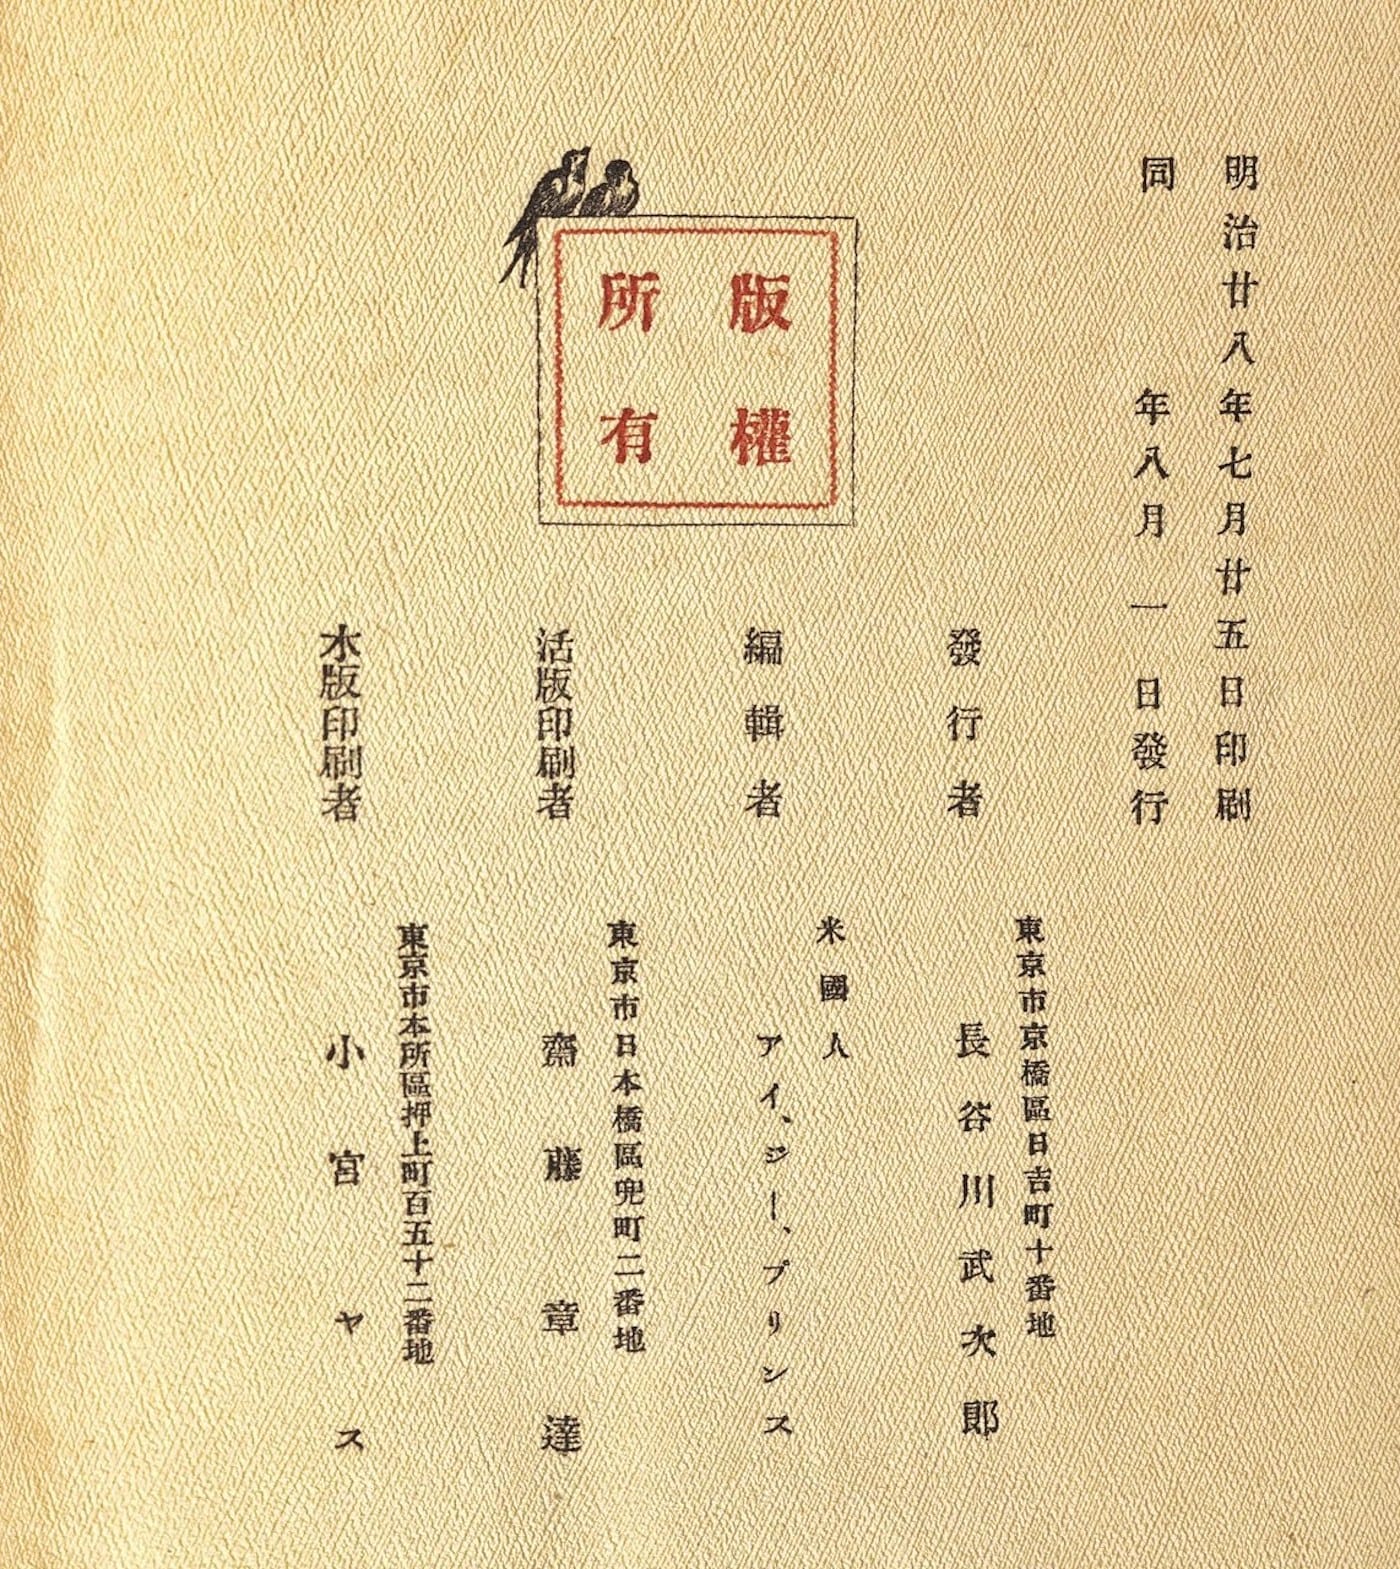 明治廿八年七月廿五日印刷
同年八月一日發行
版權
所有
發行者
東京市京橋區日吉町十番地
長谷川武次郎
編輯者
米國人
アイ、ジー、プリンス
活版印刷者
東京市日本橋區兜町二番地
齋藤章達
木版印刷者
東京市本所區押上町百五十二番地
小宮ヤス